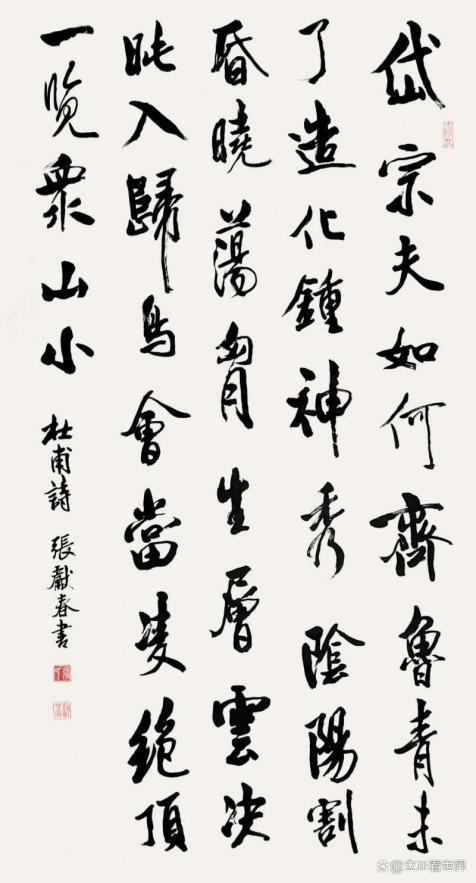 岱宗夫如何齊魯青未
了造化鍾神秀陰陽割
昏曉蕩胷生層雲决
眦入歸鳥會當凌絕頂
一覽衆山小
杜甫詩 張獻春書
立正看世界